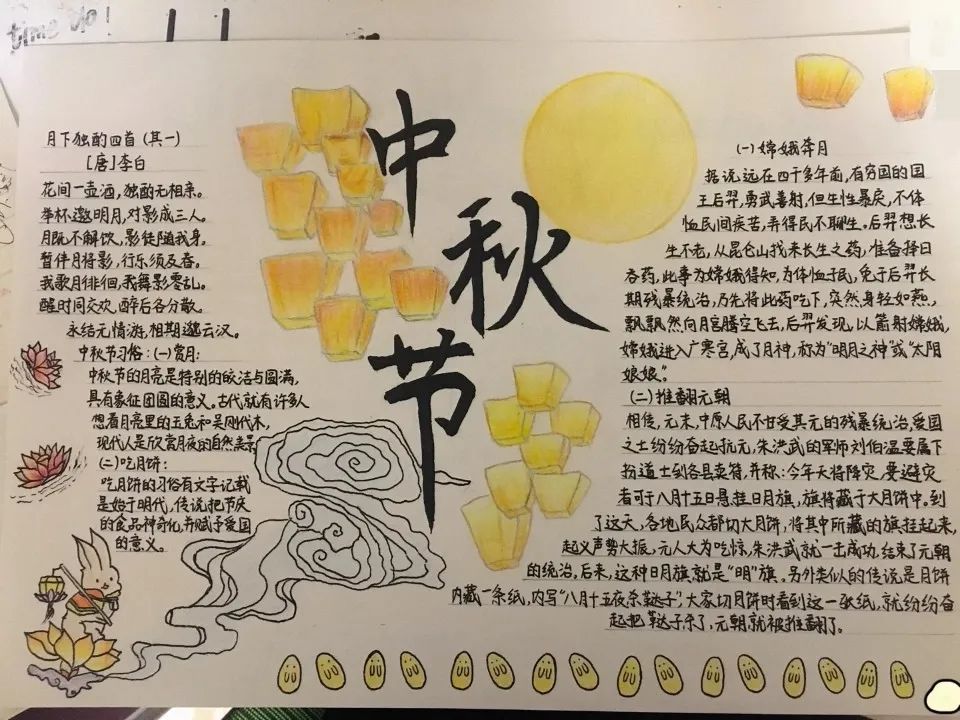 time up!
中
秋
节
月下独酌四首(其一)
[唐]李白
花间一壶酒,独酌无相亲。
举杯邀明月,对影成三人。
月既不解饮,影徒随我身。
暂伴月将影,行乐须及春。
我歌月徘徊,我舞影零乱。
醒时同交欢,醉后各分散。
永结无情游,相期邈云汉。
中秋节习俗:(一)赏月:
中秋节的月亮是特别的皎洁与圆满,
具有象征团圆的意义。古代就有许多人
想看月亮里的玉兔和吴刚代木,
现代人是欣赏月夜的自然美景
(二)吃月饼:
吃月饼的习俗有文字记载
是始于明代,传说把节庆
的食品神奇化,并赋予爱国
的意义。
(一)嫦娥奔月
据说远在四千多年前,有穷国的国
王后羿,勇武善射,但生性暴戾,不体
恤民间疾苦,弄得民不聊生。后羿想长
生不老,从昆仑山找来长生之药,准备择日
吞药,此事为嫦娥得知,为体恤于民,免于后羿长
期残暴统治,乃先将此药吃下,突然身轻如燕,
飘飘然向月宫腾空飞去,后羿发现,以箭射嫦娥,
嫦娥进入广寒宫,成了月神,称为“明月之神”或“太阳
娘娘”。
(二)推翻元朝
相传,元末,中原人民不甘受其元的残暴统治,爱国
之士纷纷奋起抗元,朱洪武的军师刘伯温要属下
扮道士到各县卖符,并称:今年天将降灾,要避灾
者可于八月十五日悬挂日月旗,旗将藏于大月饼中。到
了这天,各地民众都切大月饼,将其中所藏的旗挂起来,
起义声势大振,元人大为吃惊,朱洪武就一击成功,结束了元朝
的统治,后来,这种日月旗就是“明”旗。另外类似的传说是月饼
内藏一条纸,内写“八月十五夜杀鞑子”,大家切月饼时看到这一张纸,就纷纷奋
起把鞑子杀了,元朝就被推翻了。